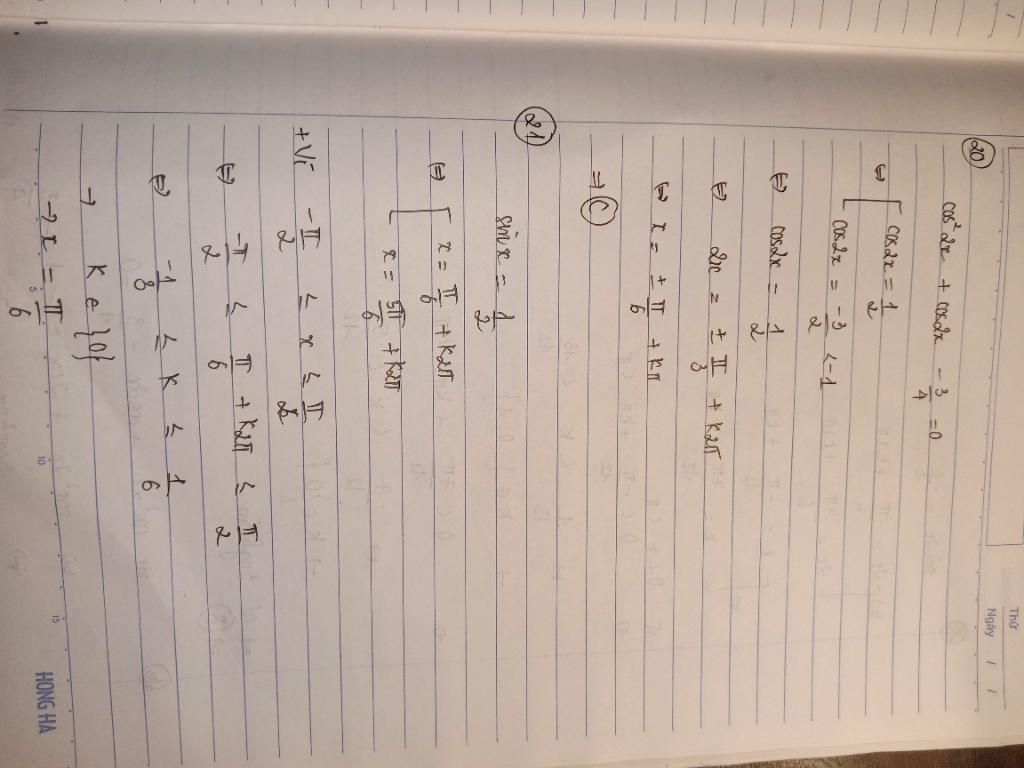 Thứ
Ngày / /
20
cos²2x + cos2x - 3/4 = 0
⇔ [ cos2x = 1/2
cos2x = -3/2 < -1
⇔ cos2x = 1/2
⇔ 2x = ± π/3 + k2π
⇔ x = ± π/6 + kπ
⇒ C
21
sin x = 1/2
⇔ [ x = π/6 + k2π
x = 5π/6 + k2π
+ Vì -π/2 ≤ x ≤ π/2
⇔ -π/2 ≤ π/6 + k2π ≤ π/2
⇔ -1/3 ≤ k ≤ 1/6
→ k ∈ {0}
→ x = π/6
5 10 15
HONG HA